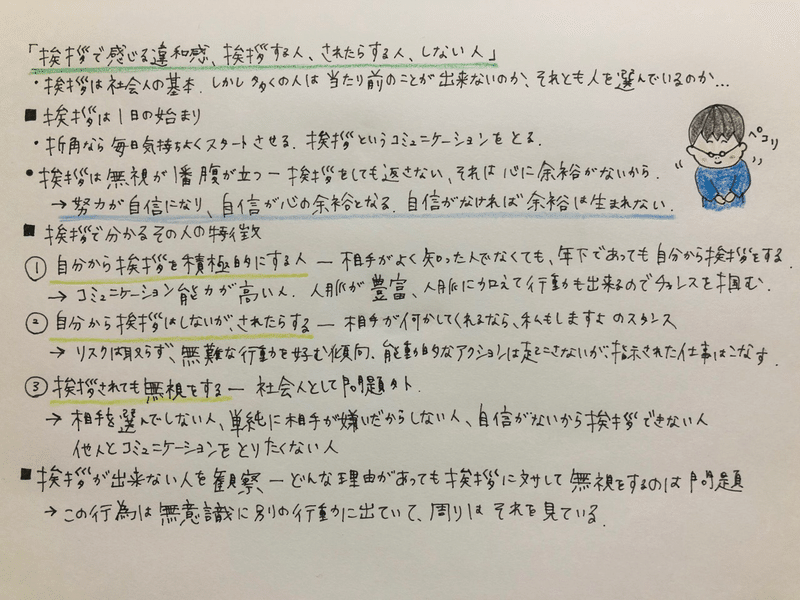 「挨拶で感じる違和感、挨拶する人、されたらする人、しない人」
・挨拶は社会人の基本.しかし多くの人は当たり前のことが出来ないのか、それとも人を選んでいるのか…
■挨拶は1日の始まり
・折角なら毎日気持ちよくスタートさせる.挨拶というコミュニケーションをとる.
ペコリ
・挨拶は無視が1番腹が立つ―挨拶をしても返さない、それは心に余裕がないから.
→努力が自信になり、自信が心の余裕となる.自信がなければ余裕は生まれない.
■挨拶で分かるその人の特徴
①自分から挨拶を積極的にする人―相手がよく知った人でなくても、年下であっても自分から挨拶をする
→コミュニケーション能力が高い人.人脈が豊富、人脈に加えて行動も出来るのでチャンスを掴む.
②自分から挨拶はしないが、されたらする―相手が何かしてくれるなら、私もしますよのスタンス
→リスクは取らず、無難な行動を好む傾向.能動的なアクションは起こさないが指示された仕事はこなす.
③挨拶されても無視をする―社会人として問題外.
→相手を選んでしない人、単純に相手が嫌いだからしない人、自信がないから挨拶できない人
他人とコミュニケーションをとりたくない人
■挨拶が出来ない人を観察―どんな理由があっても挨拶に対して無視をするのは問題
→この行為は無意識に別の行動に出ていて、周りはそれを見ている.